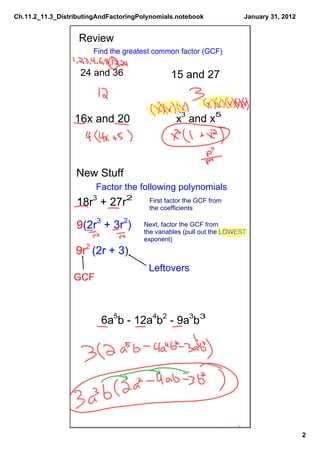 Ch.11.2_11.3_DistributingAndFactoringPolynomials.notebook
January 31, 2012
Review
Find the greatest common factor (GCF)
1,2,3,4,6,8,12,24
24 and 36
15 and 27
12
3
(x)(x)(x)
(x)(x)(x)(x)(x)
16x and 20
x³ and x⁵
4(4x+5)
x³(1+x²)
New Stuff
Factor the following polynomials
18r³ + 27r²
First factor the GCF from the coefficients
9(2r³ + 3r²)
Next, factor the GCF from the variables (pull out the LOWEST exponent)
r²
r²
9r² (2r + 3)
Leftovers
GCF
6a⁵b - 12a⁴b² - 9a³b³
3(2a⁵b-4a⁴b²-3a³b³)
3a³b(2a²-4ab-3b²)
2